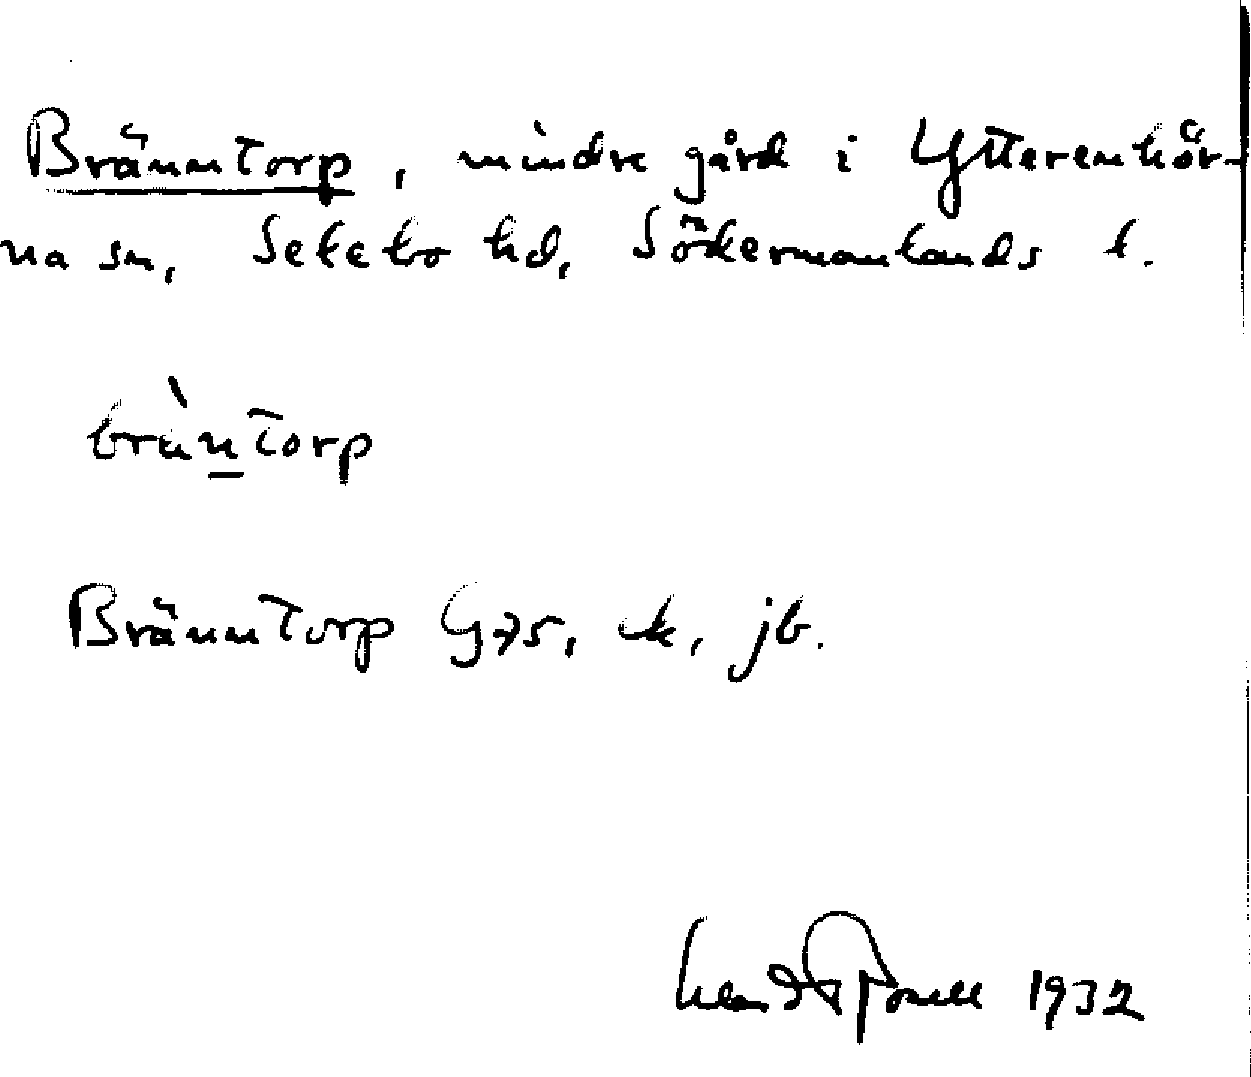 Bränntorp, mindre gård i Ytterenhör-
na sn, Selebo hd, Södermanlands l.
brä̀ntorp
Bränntorp G75, ek, jb.
1932